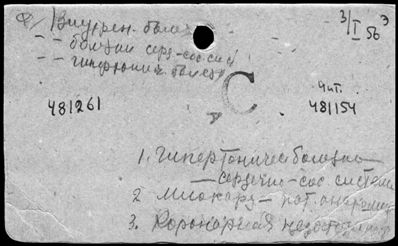 Ф/ Внутрен. болез
– – болезни серд-сос. сист
– – гипертонич. болезн
3/I 56
С
481261
Чит.
481154
1. гипертоническ болезнь –
– сердечн-сос системы
2 миокард – пат. анатомия
3. Коронарная недостаточ